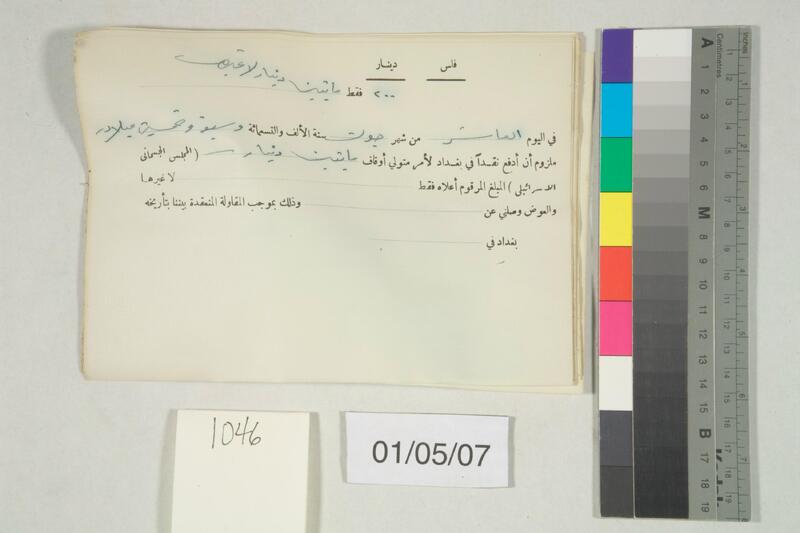 فلس دينار
٢٠٠ فقط مايتين دينار لا غيرها
في اليوم العاشر من شهر جولت سنة الألف والتسعمائة وسبعة وخمسين ميلادية
ملزوم أن أدفع نقداً في بغداد لأمر متولي أوقاف مايتين دينار (المجلس الجسماني
الاسرائيلي) المبلغ المرقوم أعلاه فقط لا غيرها
والعوض وصلني عن وذلك بموجب المقاولة المنعقدة بيننا بتأريخه
بغداد في
1046
01/05/07
inches
Centimetres
A 1 2 3 4 5 6 M 8 9 10 11 12 13 14 15 B 17 18 19